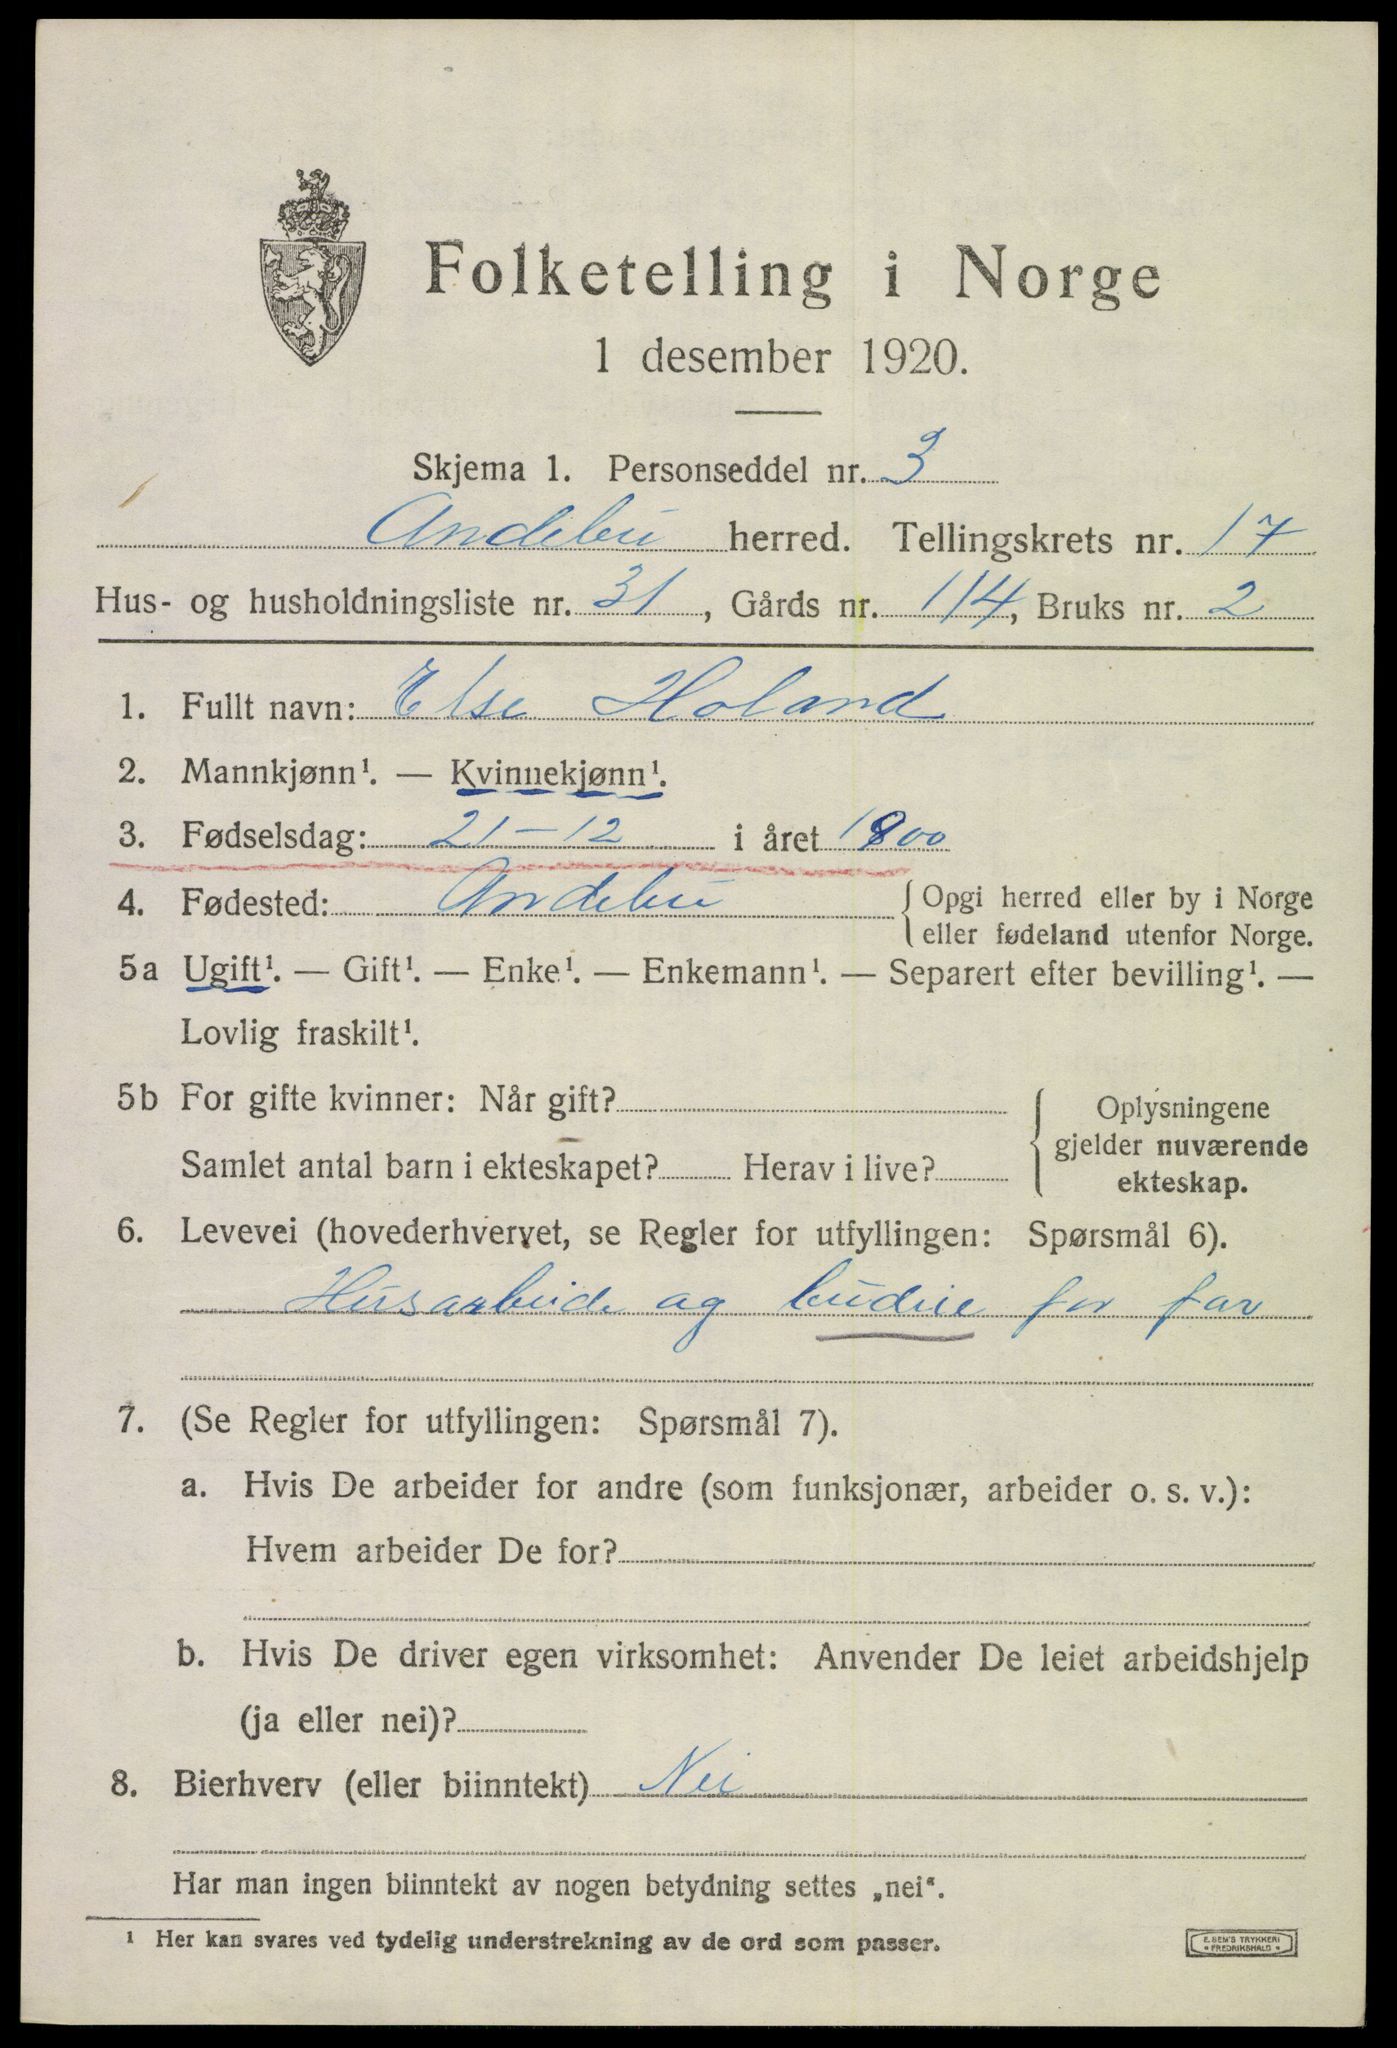 Folketelling i Norge
1 desember 1920.
Skjema 1. Personseddel nr. 3
Andebu herred. Tellingskrets nr. 17
Hus- og husholdningsliste nr. 31, Gårds nr. 114, Bruks nr. 2
1. Fullt navn: Else Holand
2. Mannkjønn¹. — Kvinnekjønn¹.
3. Fødselsdag: 21-12 i året 1900
4. Fødested: Andebu { Opgi herred eller by i Norge
eller fødeland utenfor Norge.
5a Ugift¹. — Gift¹. — Enke¹. — Enkemann¹. — Separert efter bevilling¹. —
Lovlig fraskilt¹.
5b For gifte kvinner: Når gift?
Samlet antal barn i ekteskapet? Herav i live?
{ Oplysningene
gjelder nuværende
ekteskap.
6. Levevei (hovederhvervet, se Regler for utfyllingen: Spørsmål 6).
Husarbeide og budeie for far
7. (Se Regler for utfyllingen: Spørsmål 7).
a. Hvis De arbeider for andre (som funksjonær, arbeider o. s. v.):
Hvem arbeider De for?
b. Hvis De driver egen virksomhet: Anvender De leiet arbeidshjelp
(ja eller nei)?
8. Bierhverv (eller biinntekt) Nei
Har man ingen biinntekt av nogen betydning settes „nei“.
¹ Her kan svares ved tydelig understrekning av de ord som passer.
E. SEM'S TRYKKERI
• FREDRIKSHALD •